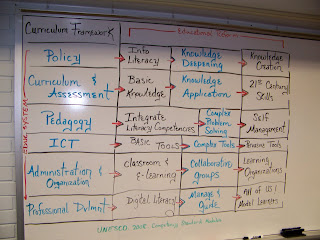 Curriculum Framework
Educational Reform
Policy
Info Literacy
Knowledge Deepening
Knowledge Creation
Curriculum & Assessment
Basic Knowledge
Knowledge Application
21st Century Skills
Pedagogy
Integrate Literacy Competencies
Complex Problem Solving
Self Management
ICT
Basic Tools
Complex Tools
Pervasive Tools
Administration & Organization
Classroom & E-Learning
Collaborative Groups
Learning Organizations
Professional Dvlmnt
Digital Literacy
Manage & Guide
All of us / Model Learners!
UNESCO 2008 Competency Standards Modules